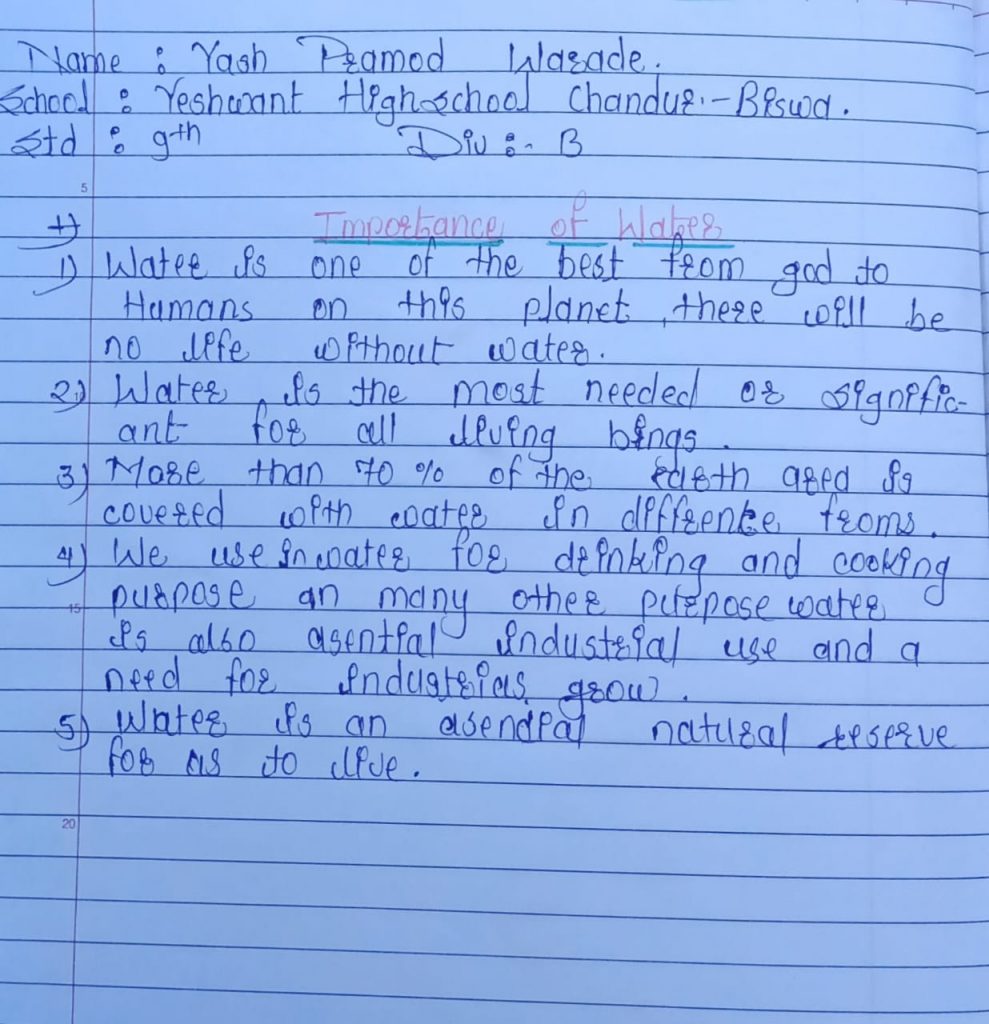 Name : Yash Pramod Warade.
School : Yeshwant Highschool Chandur.-Biswa.
Std : 9th Div :- B
5
1) Importance of Water
1) Water is one of the best from god to
Humans on this planet, there will be
no life without water.
2) Water is the most needed or signific-
ant for all living bings.
3) More than 70 % of the earth ared is
covered with water in differenke froms.
4) We use in water for drinking and cooking
15 purpose an many other purpose water
is also asential industrial use and a
need for industrias grow.
5) Water is an asendial natural reserve
for us to live.
20